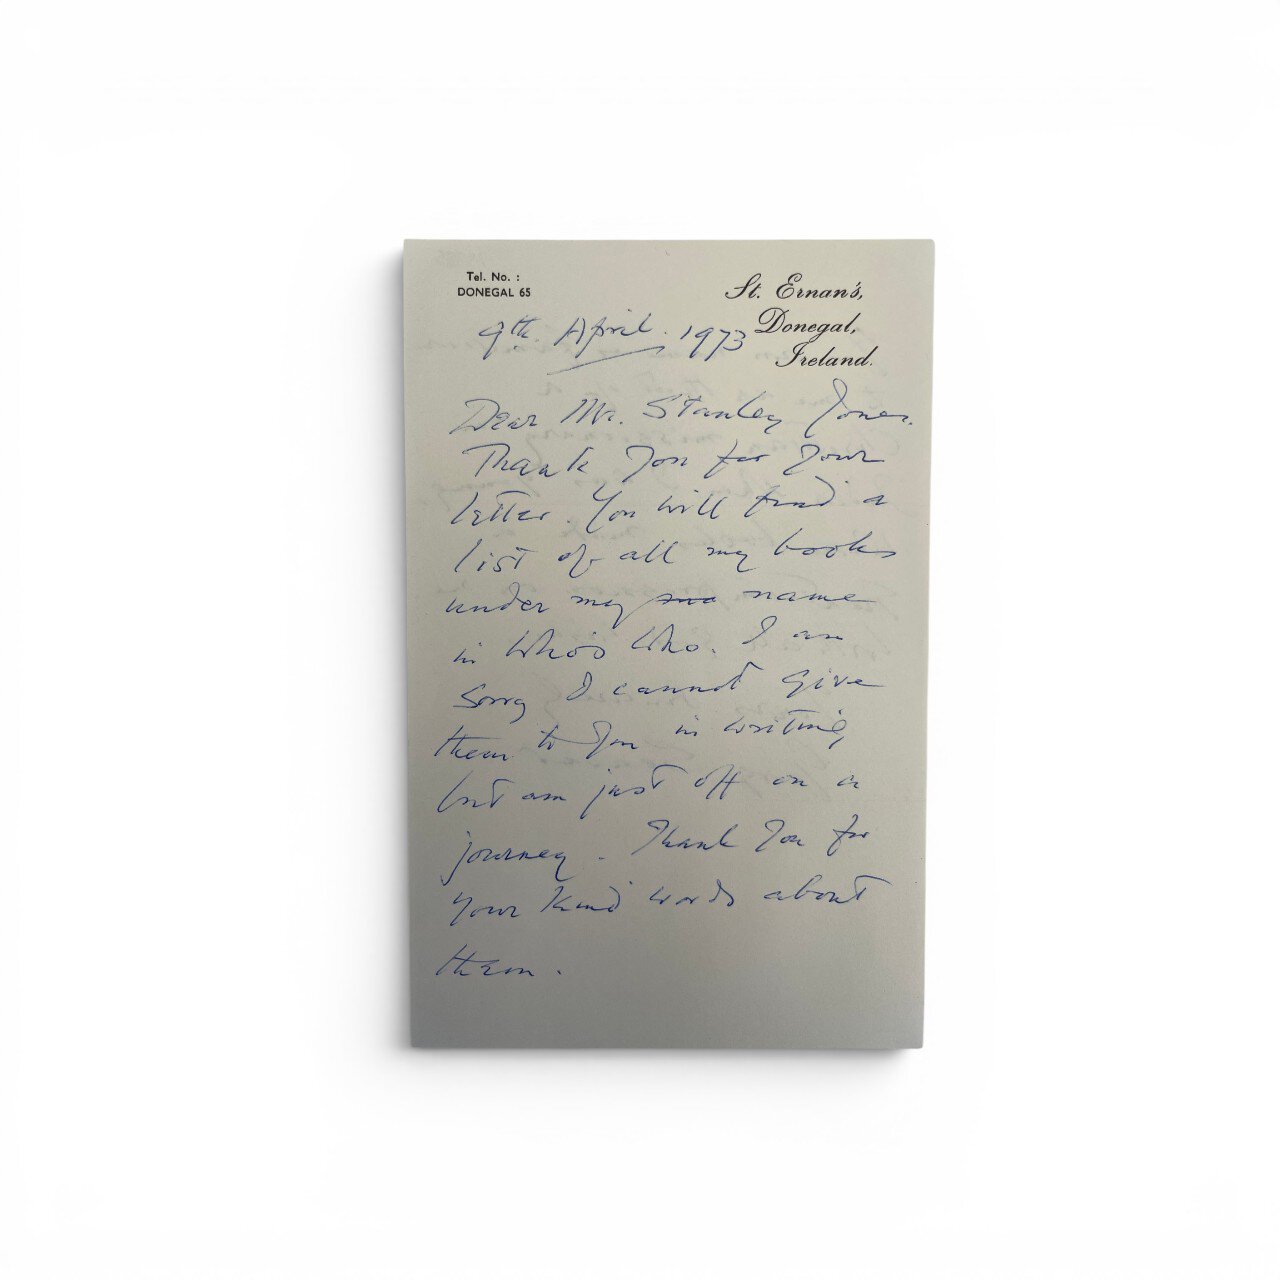 Tel. No. :
DONEGAL 65
St. Ernan's,
Donegal,
Ireland.
9th April. 1973
Dear Mr. Stanley Jones.
Thank you for your
letter You will find a
list of all my books
under my name
in Who's Who. I am
sorry I cannot give
them to you in writing,
but am just off on a
journey. Thank you for
your kind words about
them.